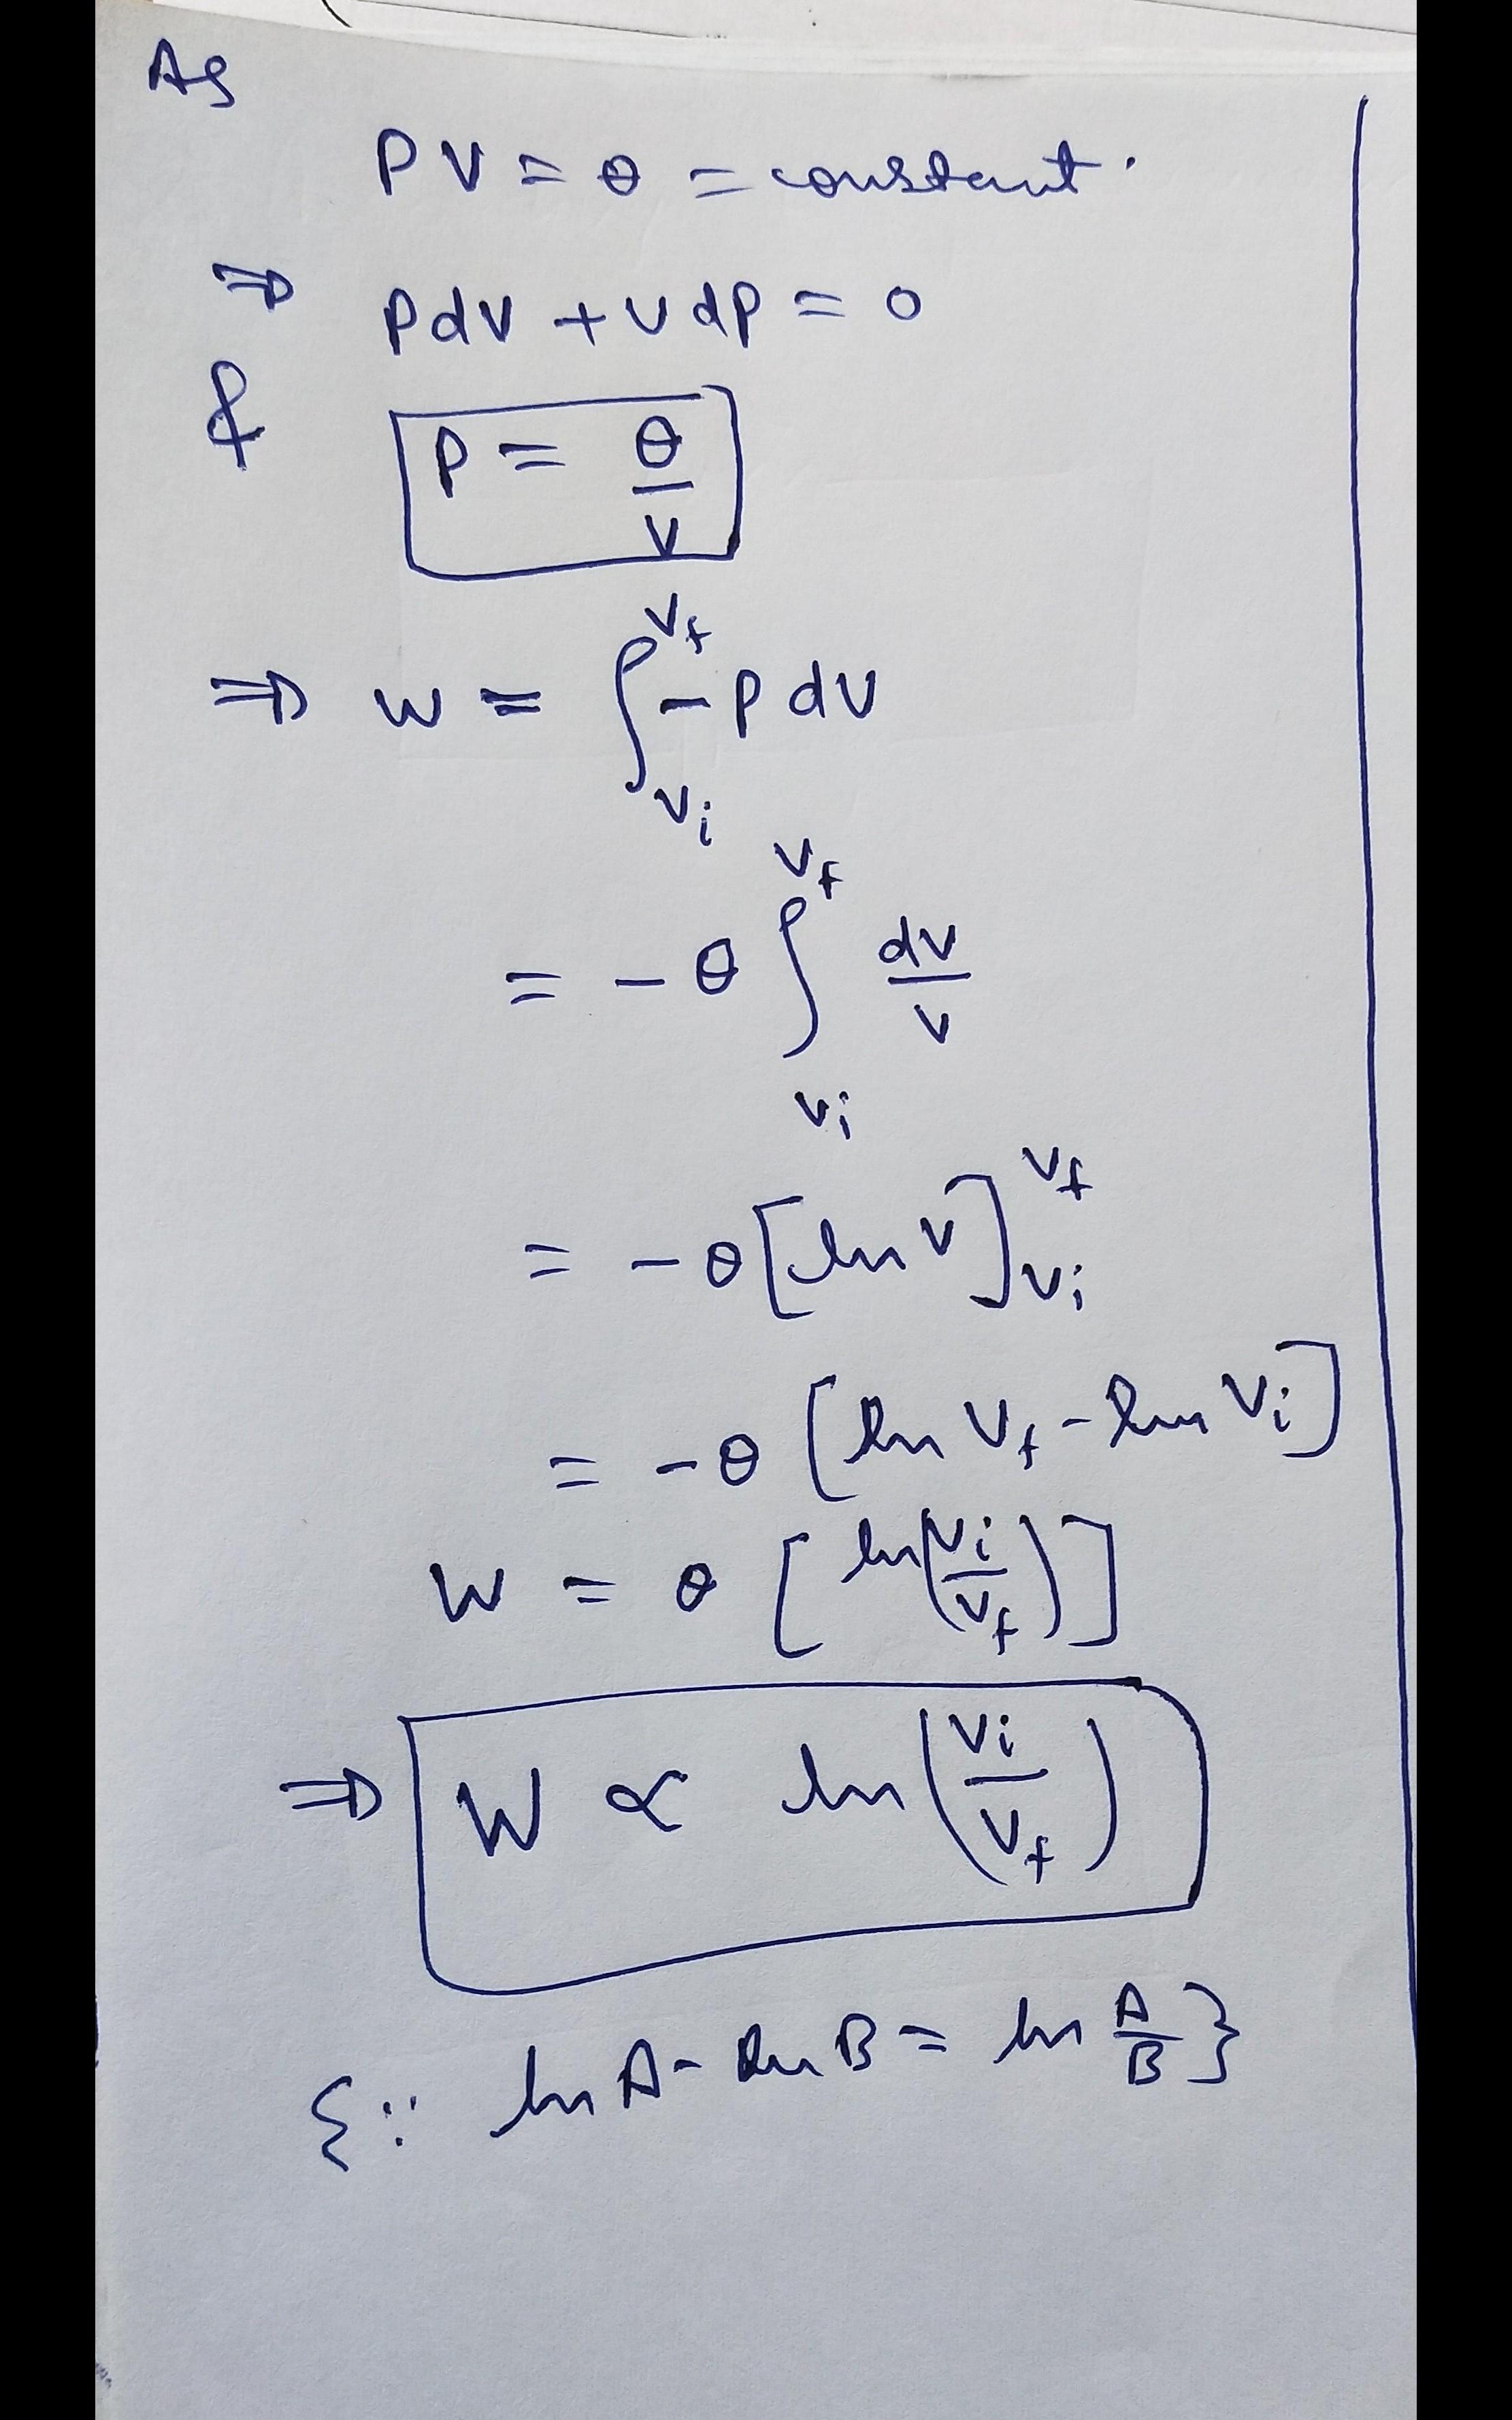 As
PV = θ = constant.
⇒ PdV + VdP = 0
& P = θ/V
⇒ W = ∫_{Vi}^{Vf} -P dV
= -θ ∫_{Vi}^{Vf} dV/V
= -θ [ln V]_{Vi}^{Vf}
= -θ [ln Vf - ln Vi]
W = θ [ln(Vi/Vf)]
⇒ W ∝ ln(Vi/Vf)
{∵ ln A - ln B = ln A/B}